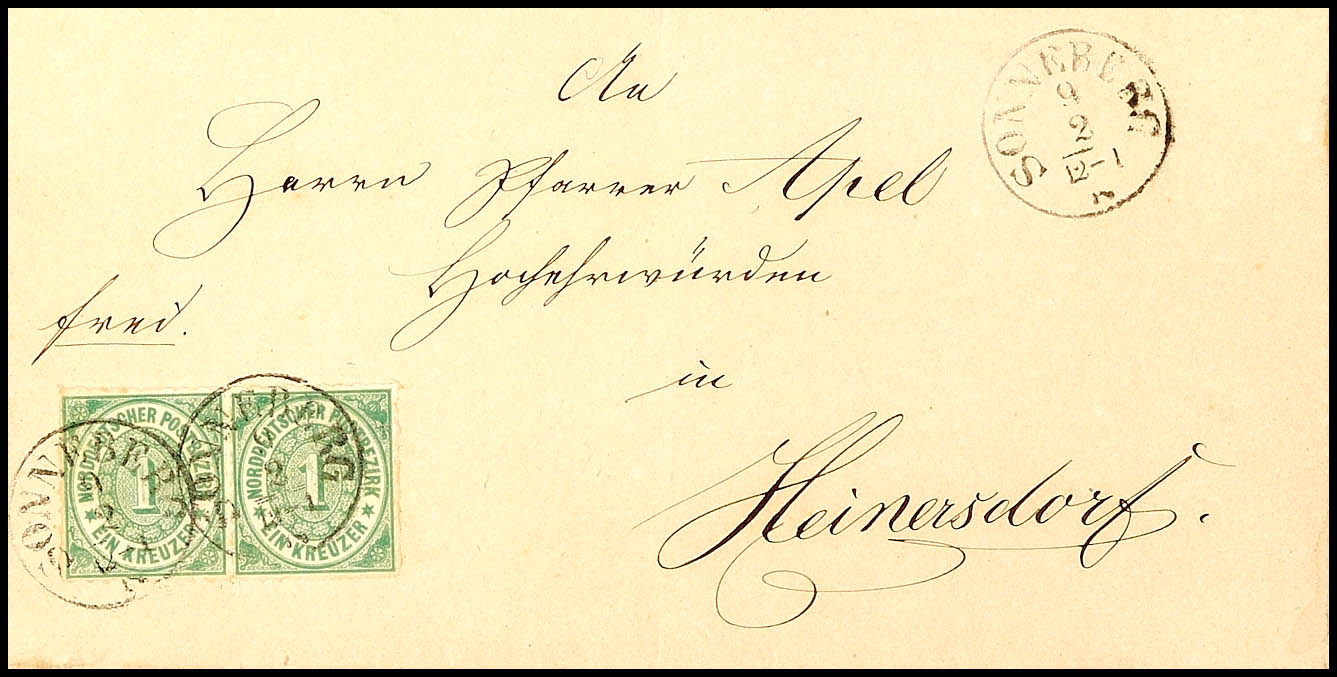 An
Herrn Pfarrer Apel
Hochehrwürden
in
Heinersdorf.
frei.
SONNEBERG
9
2
12-1
NORDDEUTSCHER POSTBEZIRK
1
EIN KREUZER
NORDDEUTSCHER POSTBEZIRK
1
EIN KREUZER
SONNEBERG
SONNEBERG